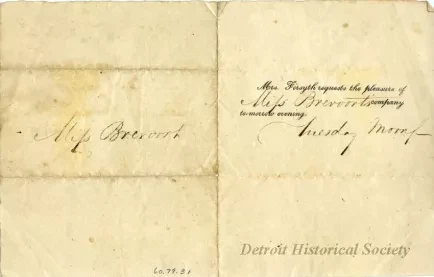 Miss Brevoort
Mrs. Forsyth requests the pleasure of
Miss Brevoorts company
to-morrow evening.
Tuesday Morng
60.79.31
Detroit Historical Society